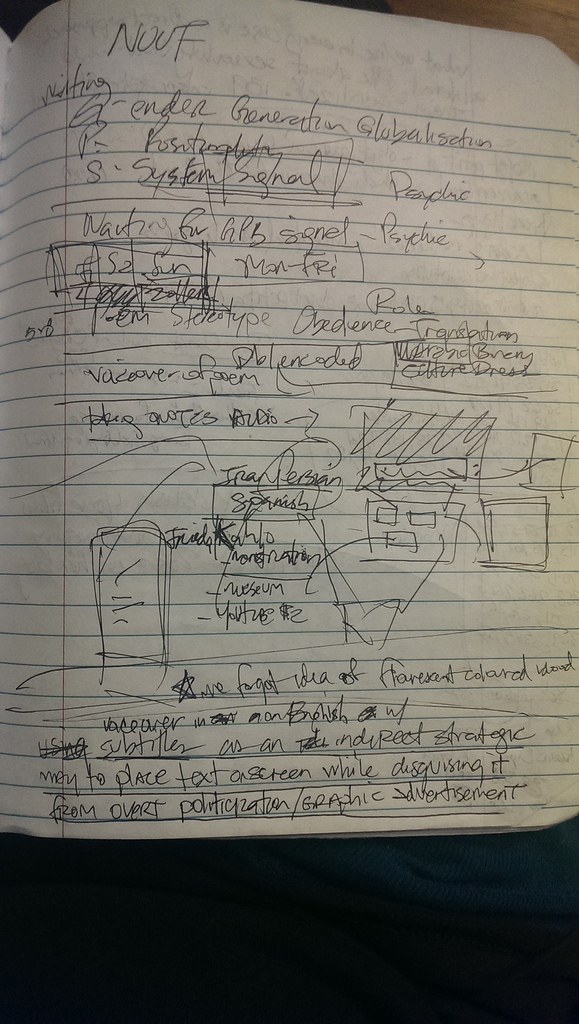 NOUF
Waiting
G-ender Generation Globalisation
P-
S - System Signal Psychic
Waiting for GPS signal - Psychic
Sa Sun Mon-Fri
Role
Poem Stereotype Obedience - Translation
Dbl encoded Binary
voiceover of poem Dress
taking QUOTES AUDIO →
Iran Persian
Spanish
Frieda Kahlo
- menstruation
- museum
- Youtube
we forgot idea of flourescent coloured blood
voiceover in non English w/
using subtitles as an indirect strategic
way to place text onscreen while disguising it
from overt politicization/GRAPHIC Advertisement